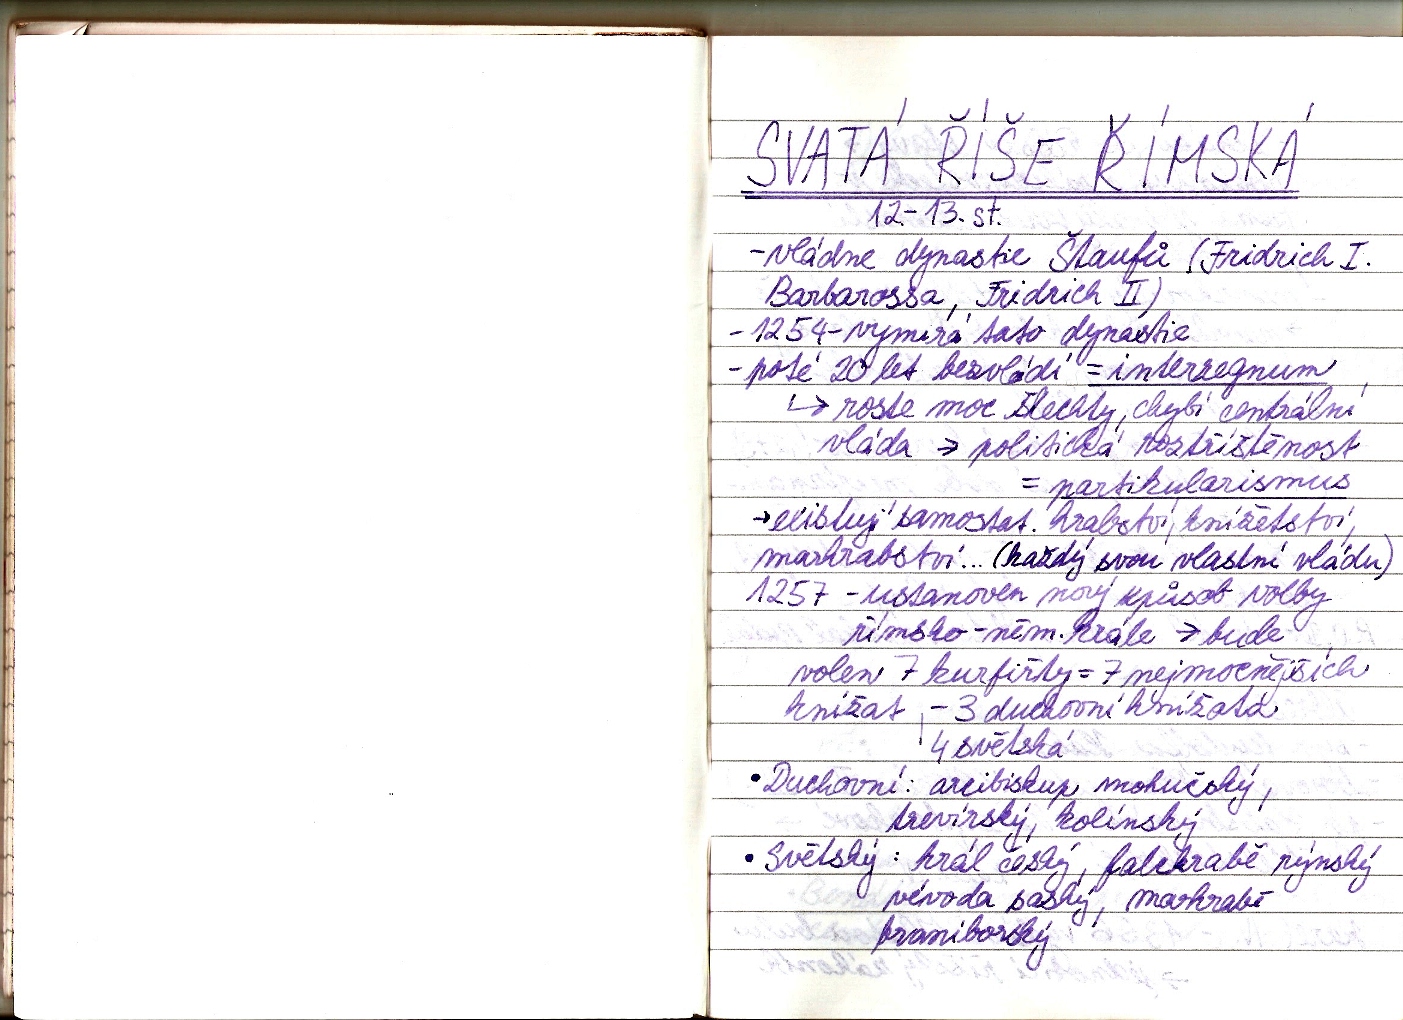 SVATÁ ŘÍŠE ŘÍMSKÁ
12.-13. st.
-vládne dynastie Štaufů (Fridrich I.
Barbarossa, Fridrich II)
-1254-vymírá tato dynastie
-poté 20 let bezvládí = interregnum
↳ roste moc šlechty, chybí centrální
vláda → politická roztříštěnost
= partikularismus
→existují samostat. hrabství, knížetství,
markrabství... (každý svou vlastní vládu)
1257 -ustanoven nový způsob volby
římsko-něm. krále → bude
volen 7 kurfiřty = 7 nejmocnějších
knížat - 3 duchovní knížata
4 světská
• Duchovní: arcibiskup mohučský,
trevírský, kolínský
• Světský: král český, falckrabě rýnský
vévoda saský, markrabě
braniborský